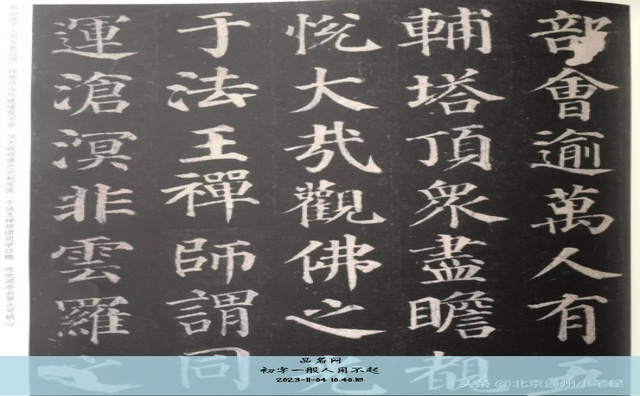 部會逾萬人有五
輔塔頂衆盡瞻覩
悅大哉觀佛之光
于法王禪師謂同
運滄溟非雲羅之
品名网
初字一般人用不起
头条 @北京通州小笔星